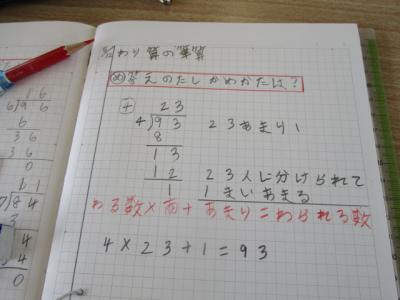 16
6)96
6
36
36
0
84
3
4
4
0
わり算の筆算
め 答えのたしかめかたは？
23
4)93 23あまり1
8
13
12 23人に分けられて
1 1まいあまる
わる数×商+あまり=わられる数
4×23+1=93